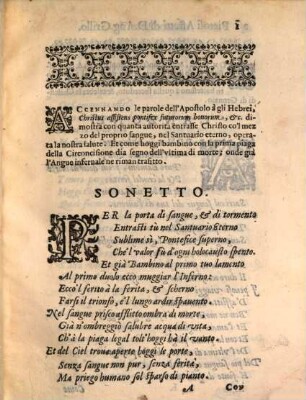 1
ACCENNANDO le parole dell'Apostolo à gli Hebrei,
Christus assistens pontifex futurorum bonorum, &c. di-
mostra con quanta autorità entrasse Christo co'l mez
zo del proprio sangue, nel Santuario eterno, opera-
ta la nostra salute. Et come hoggi bambino con la prima piaga
della Circoncisione dia segno dell'vltima di morte; onde già
l'Angue infernale ne riman trafitto.
SONETTO.
PER la porta di sangue, & di tormento
Entrasti tù nel Santuario Eterno
Sublime sì, Pontefice superno,
Che'l valor fù d'ogni holocausto spento.
Et già Bambino al primo tuo lamento
Al primo duolo ecco muggiar l'Inferno:
Ecco'l ferito à ferita, & scherno
Farsi il trionfo, è'l lungo ardir spauento.
Nel sangue prisco afflitto ombra di morte,
Già n'ombreggiò salubre acqua di vita,
Ch'à la piaga legal tolt'hoggi hà il vanto.
Et del Ciel troue aperto hoggi le porte,
Senza sangue non pur, senza ferita,
Ma priego humano sol sparso di pianto.
A
Cor